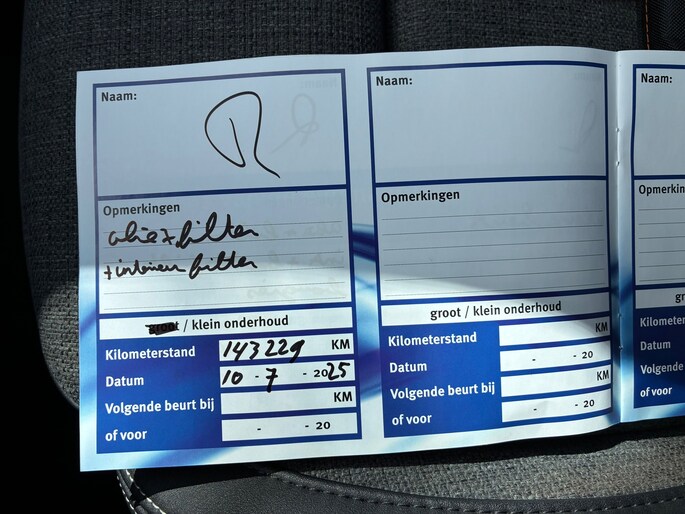 Naam:
Opmerkingen
olie + filter
+ interieur filter
groot / klein onderhoud
Kilometerstand 143229 KM
Datum 10 - 7 - 2025
Volgende beurt bij KM
of voor - - 20
Naam:
Opmerkingen
groot / klein onderhoud
Kilometerstand KM
Datum - - 20
Volgende beurt bij KM
of voor - - 20
Naam:
Opmerkin
gr
Kilometer
Datum
Volgende
of voor